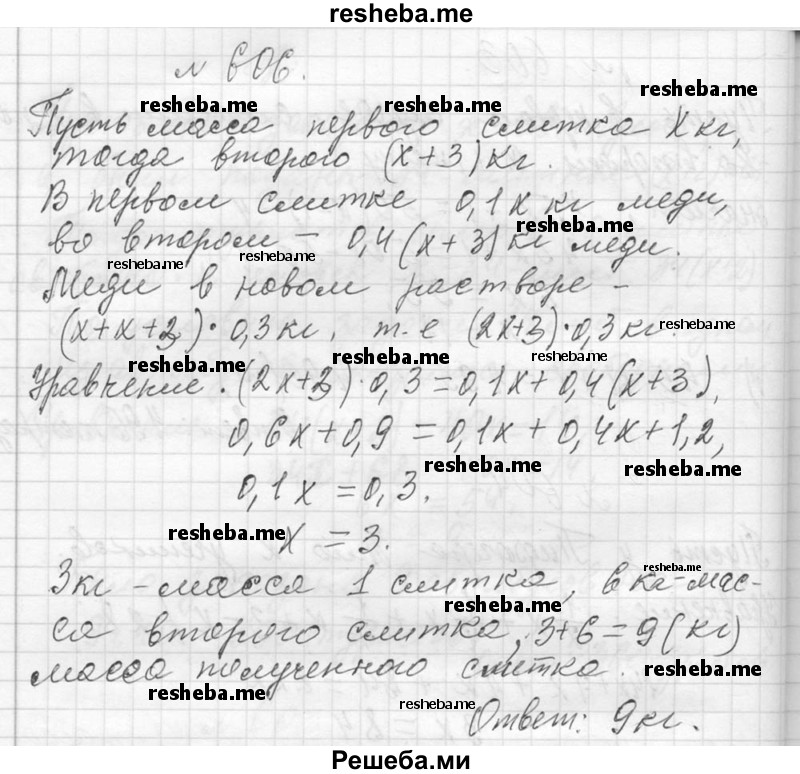 resheba.me
№ 606.
resheba.me resheba.me resheba.me
Пусть масса первого слитка X кг,
тогда второго (x+3) кг.
В первом слитке 0,1x кг меди,
resheba.me
во втором – 0,4(x+3) кг меди.
resheba.me resheba.me
Меди в новом растворе –
(x+x+3)·0,3 кг, т.е (2x+3)·0,3 кг.
resheba.me
resheba.me resheba.me resheba.me
Уравнение. (2x+3)·0,3=0,1x+0,4(x+3),
0,6x+0,9=0,1x+0,4x+1,2,
resheba.me resheba.me
0,1x=0,3.
resheba.me
x=3.
resheba.me
3кг – масса 1 слитка, 6 кг-мас-
resheba.me
са второго слитка, 3+6=9(кг)
масса полученного слитка.
resheba.me
resheba.me resheba.me
Ответ: 9кг.
Решеба.ми